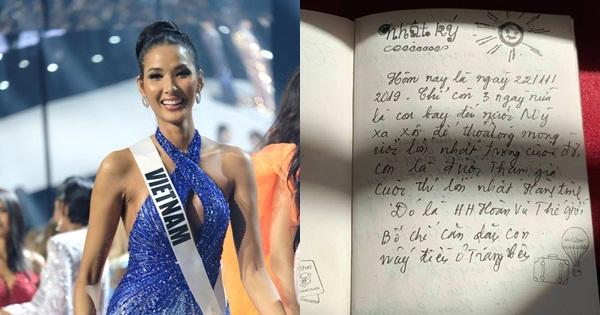 VIETNAM
nhật ký
Hôm nay là ngày 22/11/
2019. Chỉ còn 3 ngày nữa
là con bay đến nước Mỹ
xa xôi để thỏa lòng mong
ước lớn nhất trong cuộc đời
con là được tham gia
Cuộc thi lớn nhất Hành tinh
Đó là HH Hoàn Vũ Thế Giới
Bố chỉ căn dặn con
mấy điều ở trang bên